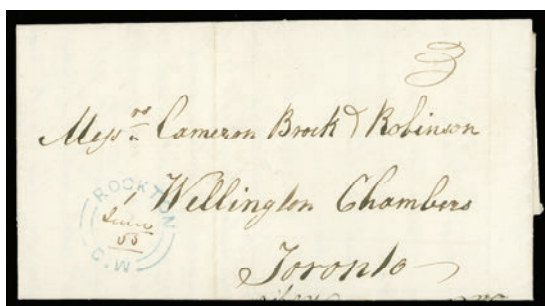 3
Messrs Cameron Brock & Robinson
Wellington Chambers
Toronto
ROCKTON
1
June
55
U.C.